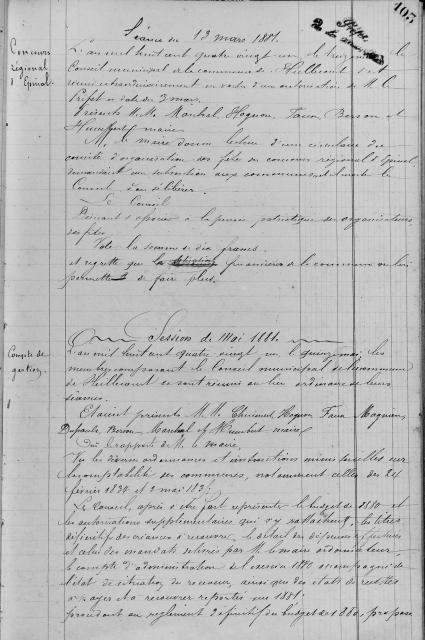 105
Séance du 13 mars 1881.
Concours
régional
d'Epinal
L'an mil huit cent quatre vingt un le treize le
Conseil municipal de la commune de s'est
réuni extraordinairement en vertu d'une autorisation de M. le
Préfet en date du 3 mars.
Présents M.M. Marchal, Hognon, Faron, Berson et
Humbert maire
M. le maire donne lecture d'une circulaire du
comité d'organisation des fêtes du concours régional d'Epinal,
demandant une subvention aux communes et invite le
Conseil d'en délibérer.
Le Conseil
Désirant s'associer à la pensée patriotique des organisateurs
des fêtes
Vote la somme de dix francs.
et regrette que la financière de la commune ne lui
permette de faire plus.
Session de Mai 1881.
Compte de
gestion
L'an mil huit cent quatre vingt un le quinze mai, les
membres composant le Conseil municipal de la commune
de se sont réunis au lieu ordinaire de leurs
séances.
Etaient présents M.M. Hognon
Berson, Marchal et Humbert maire
Ouï le rapport de M. le Maire
Vu les diverses ordonnances et instructions ministérielles sur
la comptabilité des communes, notamment celles des 24
février 183 et 2 mai 183
Le Conseil, après s'être fait représenter le budget de 1880 et
les autorisations supplémentaires qui s'y rattachent, les titres
définitifs des créances à recouvrer, le détail des dépenses effectuées
et celui des mandats délivrés par M. le maire ordonnateur,
le compte d'administration de l'exercice 1880 accompagné de
l'état de situation du receveur, ainsi que des états de recettes
à payer et à recouvrer reportés en 1881.
procédant au règlement définitif du budget de 1880, propose